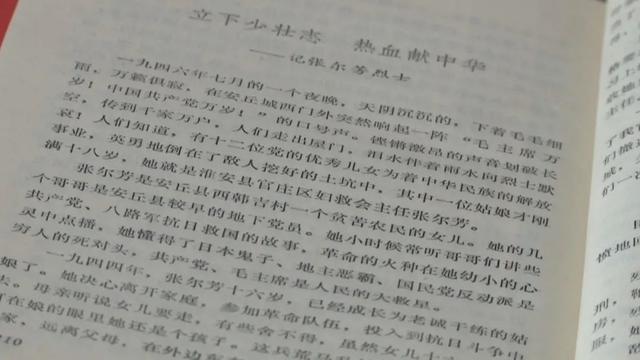 立下少壮志 热血献中华
——记张尔芳烈士
一九四六年七月的一个夜晚，天阴沉沉的，下着毛毛细
雨，万籁俱寂，在安丘城西门外突然响起一阵“毛主席万
岁！中国共产党万岁！”的口号声。铿锵激昂的声音划破长
空，传到千家万户，人们走出屋门，泪水伴着雨水向烈士默
哀！人们知道，有十二位党的优秀儿女为着中华民族的解放
事业，英勇地倒在了敌人挖好的土坑中，其中一位姑娘才刚
满十八岁，她就是淮安县官庄区妇救会主任张尔芳。
张尔芳是安丘县西韩吉村一个贫苦农民的女儿。她的儿
个哥哥是安丘县较早的地下党员。她小时候常听哥哥们讲些
共产党、八路军抗日救国的故事，革命的火种在她幼小的心
灵中点播，她懂得了日本鬼子、地主恶霸、国民党反动派是
穷人的死对头，共产党、毛主席是人民的大救星。
一九四四年，张尔芳十六岁，已经成长为老诚干练的姑
娘了。她决心离开家庭，参加革命队伍，投入到抗日斗争中
去。母亲听说女儿要走，有些舍不得，虽然女儿十
在娘的眼里她还是个孩子。这兵荒马
家，远离父母，在外边
10